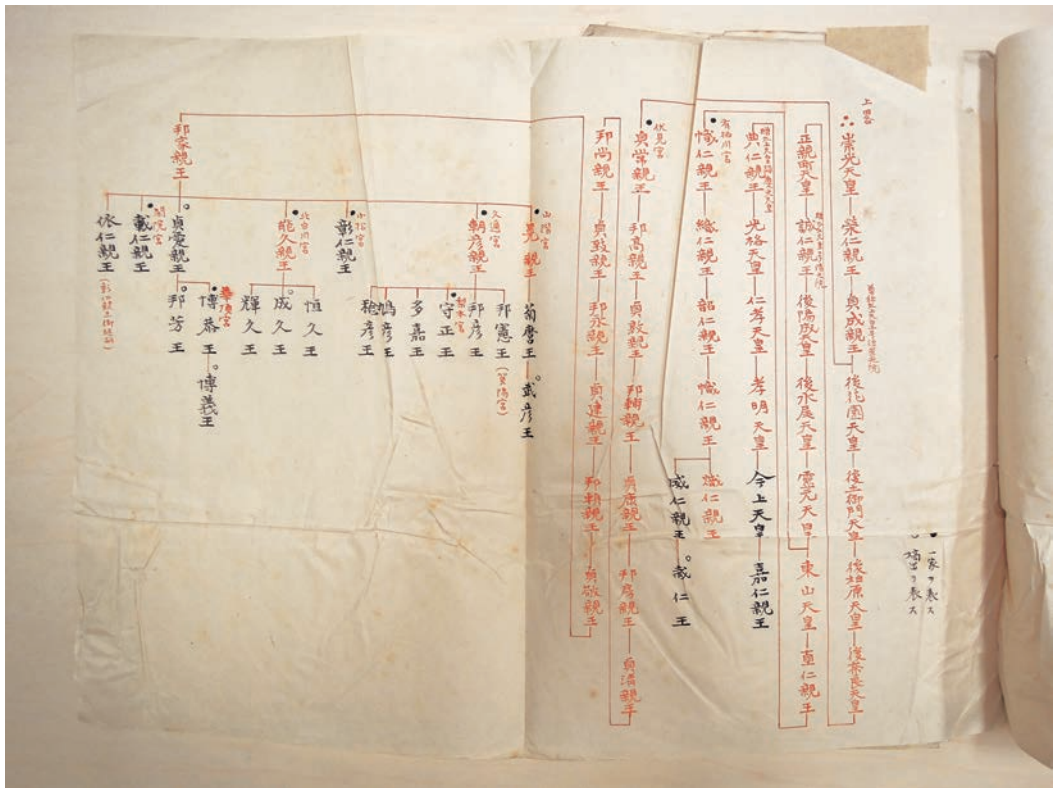 ● 一家ヲ表ス
○ 嫡出ヲ表ス
崇光天皇 栄仁親王 貞成親王 後花園天皇 後土御門天皇 後柏原天皇 後奈良天皇
正親町天皇 誠仁親王 後陽成天皇 後水尾天皇 霊元天皇 東山天皇 直仁親王
典仁親王 光格天皇 仁孝天皇 孝明天皇 今上天皇 嘉仁親王
有栖川宮
幟仁親王 織仁親王 韶仁親王 幟仁親王 熾仁親王
威仁親王 ○栽仁王
伏見宮
貞常親王 邦高親王 貞敦親王 邦輔親王 貞康親王 邦房親王 貞清親王
邦尚親王 貞致親王 邦永親王 貞建親王 邦頼親王 貞敬親王
邦家親王
山階宮
晃親王 菊麿王 ○武彦王
久邇宮
朝彦親王
邦憲王(賀陽宮)
邦彦王
梨本宮
守正王
多嘉王
鳩彦王
稔彦王
小松宮
彰仁親王
北白川宮
能久親王
恒久王
○成久王
輝久王
○貞愛親王
華頂宮
博恭王 ○博義王
○邦芳王
閑院宮
載仁親王
依仁親王